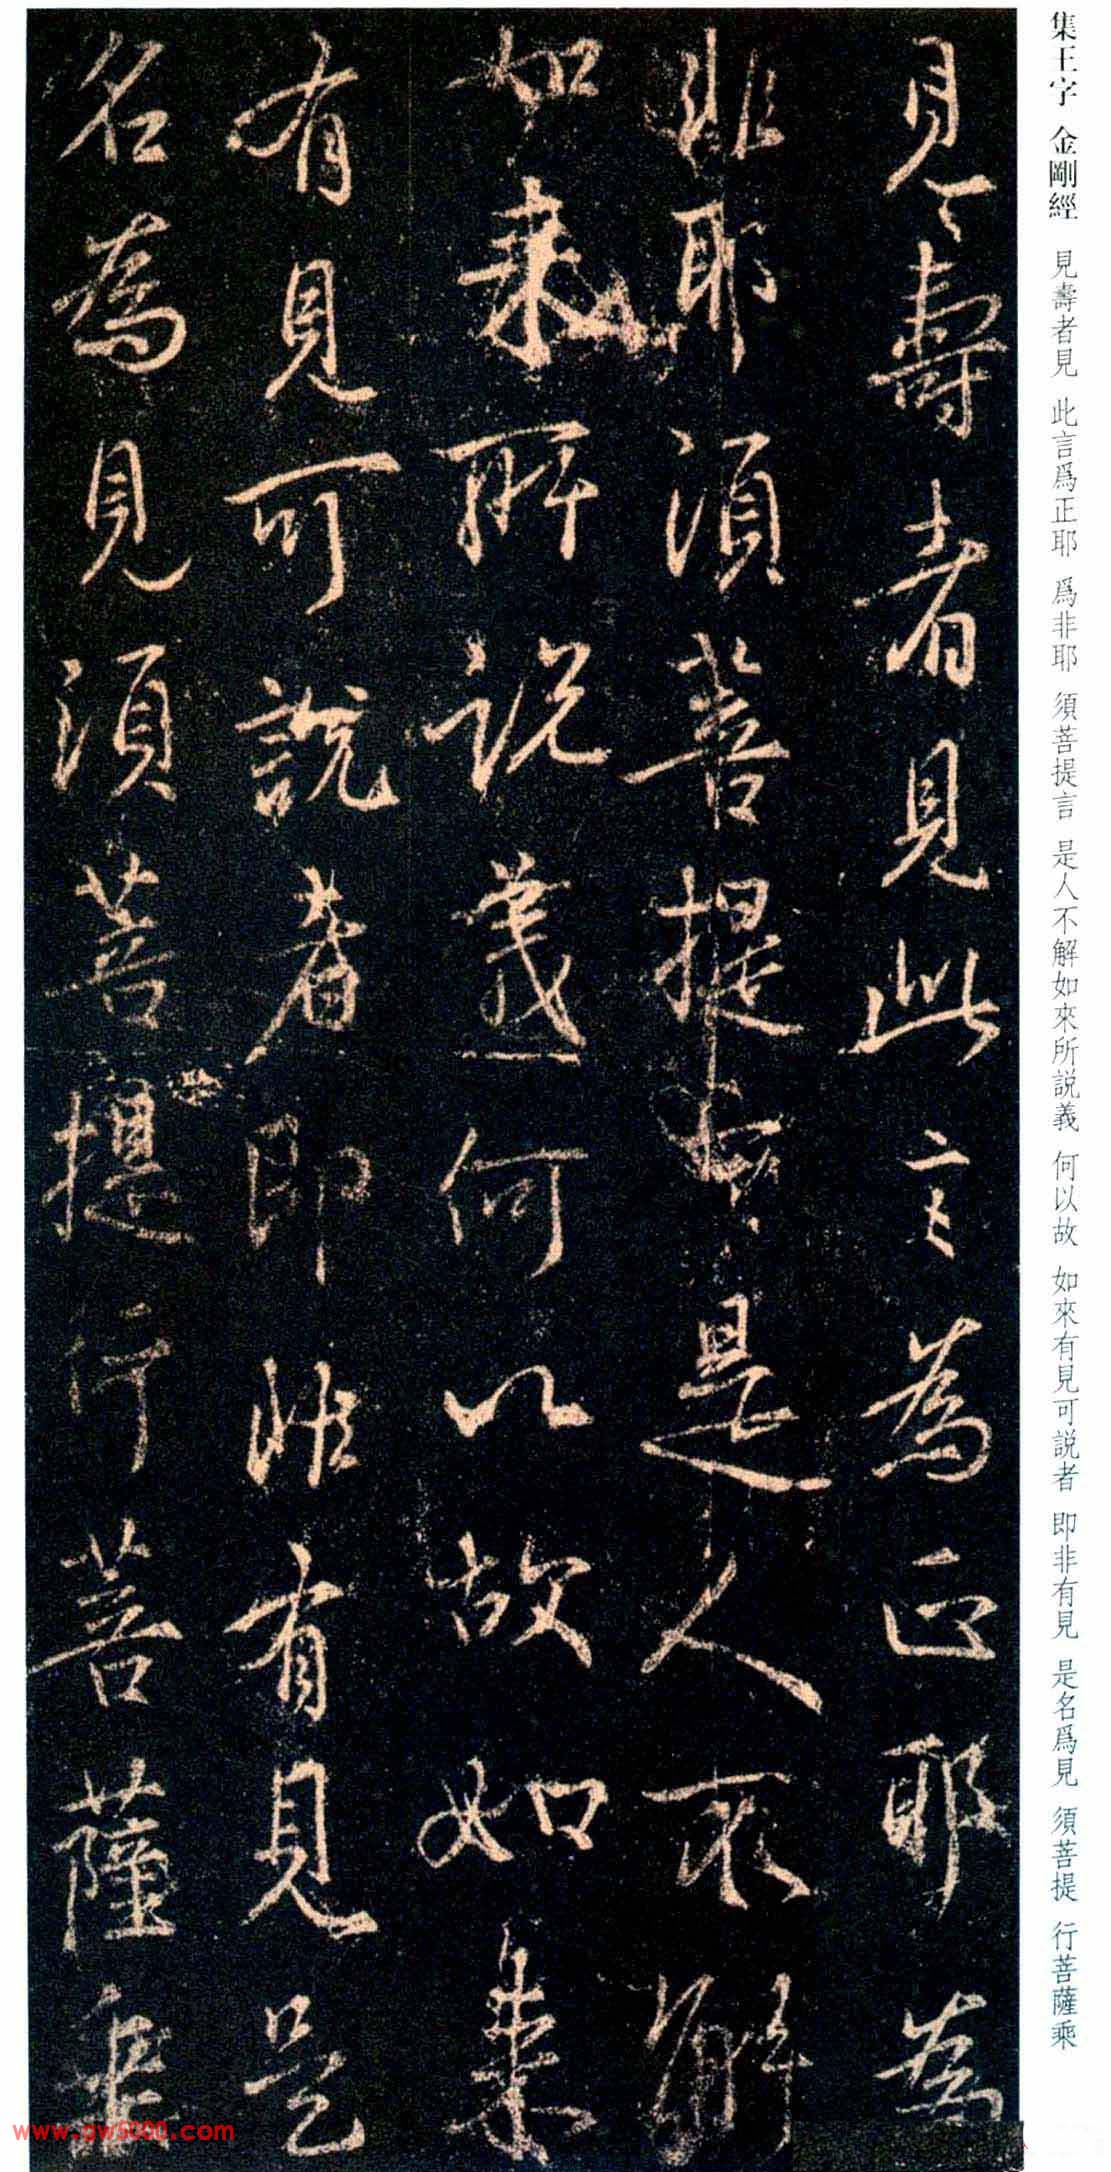 集王字 金剛經 見壽者見 此言爲正耶 爲非耶 須菩提言 是人不解如來所説義 何以故 如來有見可説者 即非有見 是名爲見 須菩提 行菩薩乘
見壽者見此言為正耶為
非耶須菩提言是人不解
如来所説義何以故如来
有見可說者即非有見是
名為見須菩提行菩薩乘
www.gw5000.com